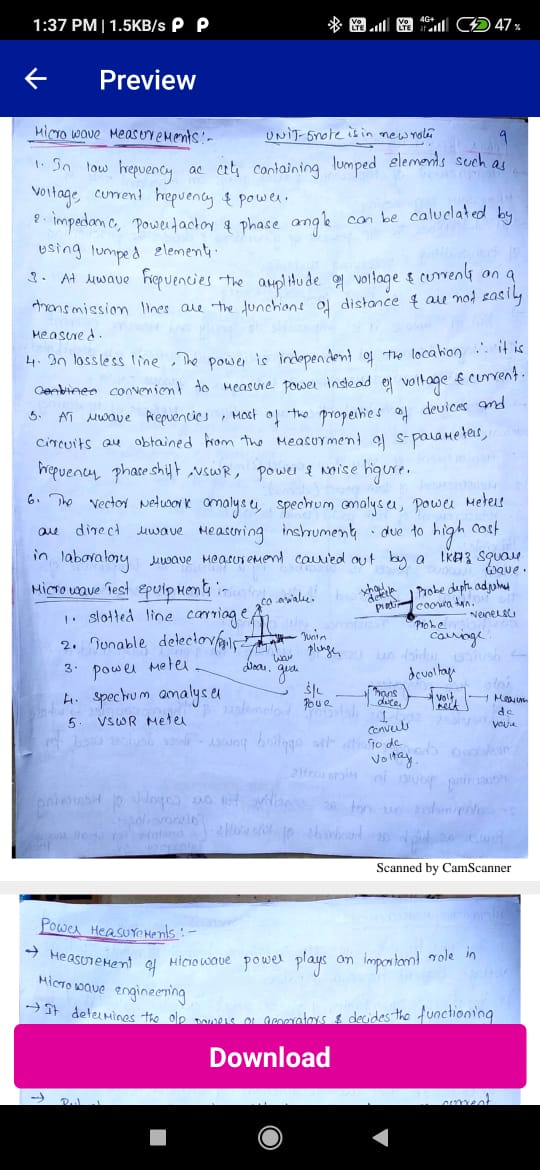 1:37 PM | 1.5KB/s P P Vo LTE Vo LTE 4G+ 47 %
← Preview
Micro wave Measurements:- UNIT-5note is in newnotes 9
1. In low frequency ac ckts containing lumped elements such as
voltage, current frequency & power.
2. impedance, powerfactor & phase angle can be caluclated by
using lumped element.
3. At uwave frequencies the amplitude of voltage & currents on a
transmission lines are the functions of distance & are not easily
measured.
4. In lossless line, The power is independent of the location ∴ it is
convenient to measure power instead of voltage & current.
5. At uwave frequencies, most of the properties of devices and
circuits are obtained from the measurment of s-parameters,
frequency phase shift, VSWR, power & Noise figure.
6. The vector network analyser, spectrum analyser, power meters
are direct uwave measuring instruments. due to high cost
in laboratory uwave measurement carried out by a 1KHz square
wave.
Microwave Test Equipments:-
1. slotted line carriage
2. Tunable detector
3. power meter
4. spectrum analyser
5. VSWR meter
Probe depth
Probe
carriage
dcvoltage
Trans
ducer
volt
convert
To dc
voltage
Scanned by CamScanner
Power Measurements:-
→ Measurement of Microwave power plays an important role in
Microwave engineering
→ It determines the o/p powers of generators & decides the functioning
Download
current